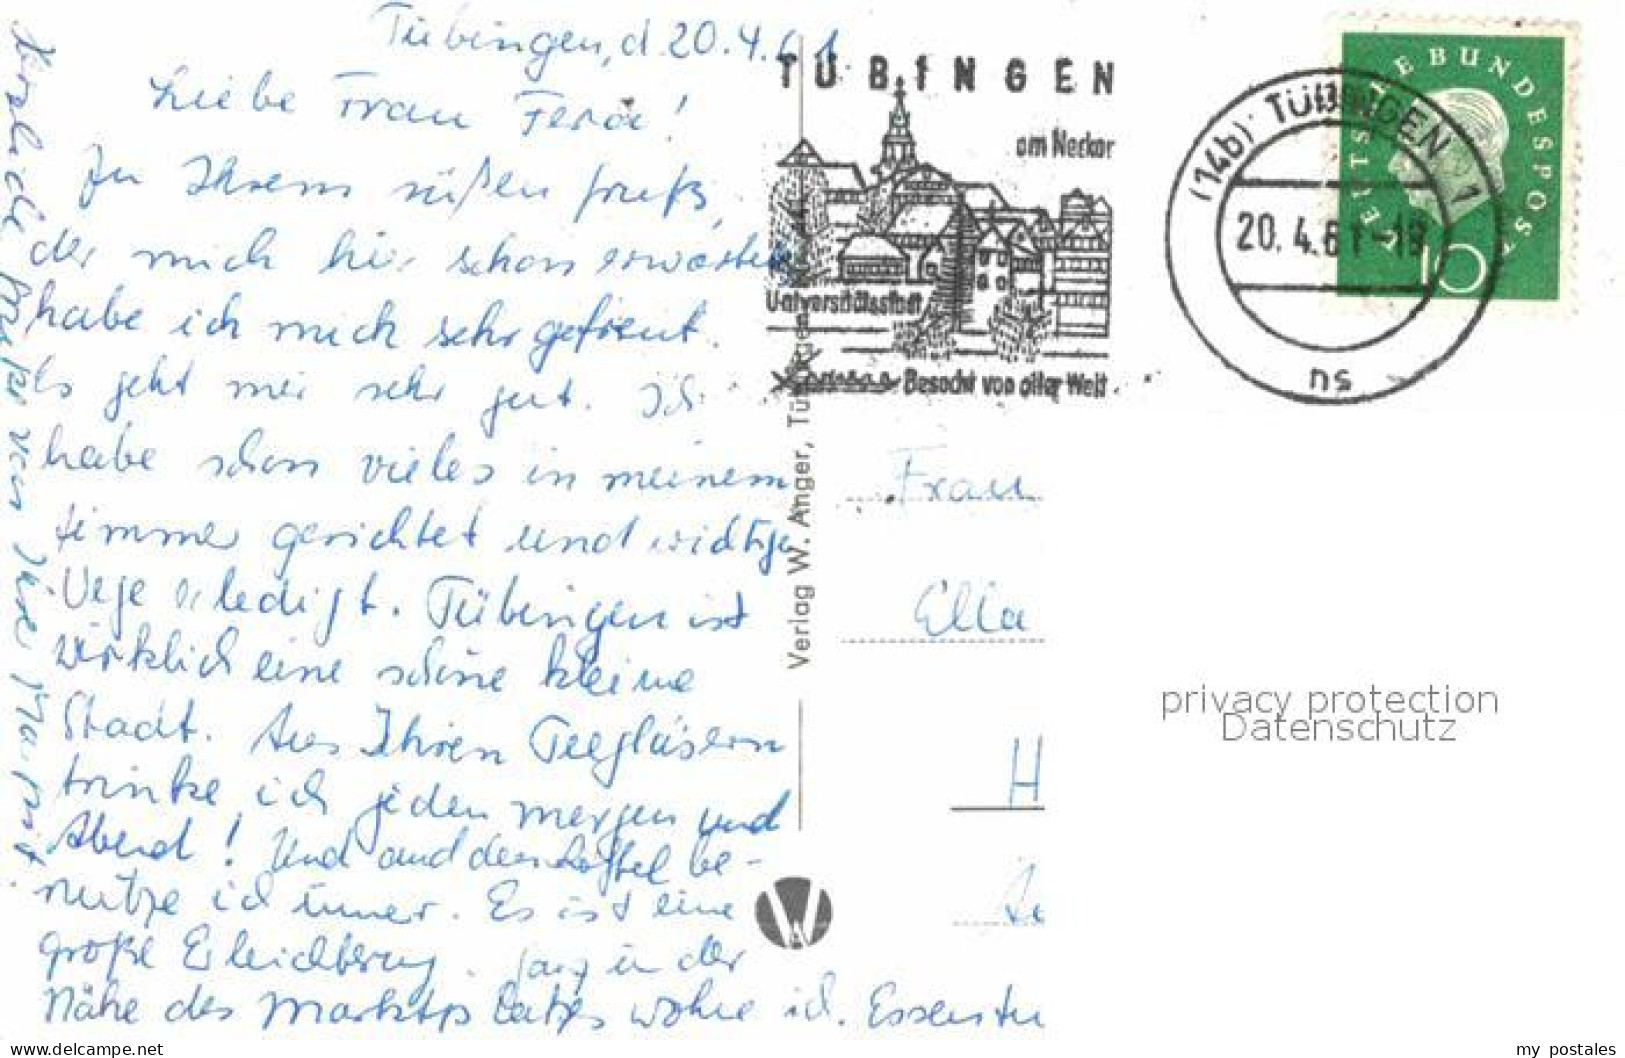 Tübingen, d. 20.4.61
Liebe Frau
Zu Ihrem süßen Gruß,
der mich hier schon erwartete
habe ich mich sehr gefreut.
Es geht mir sehr gut. Ich
habe schon vieles in meinem
Zimmer gerichtet und wichtige
Wege erledigt. Tübingen ist
wirklich eine schöne kleine
Stadt. Aus Ihren Teegläsern
trinke ich jeden morgen und
Abend! Und auch den Löffel be-
nutze ich immer. Es ist eine
große Erleichterung. Ganz in der
Nähe des Marktplatzes wohne ich. Essen
Herzliche Grüße von Ihrer
TÜBINGEN
am Neckar
Universitätsstadt
Besucht von aller Welt
(14b) TÜBINGEN 1
20.4.61-18
ns
DEUTSCHE BUNDESPOST
10
Verlag W. Anger, Tübingen
Frau
Ella
H
W
privacy protection
Datenschutz
www.delcampe.net
my_postales